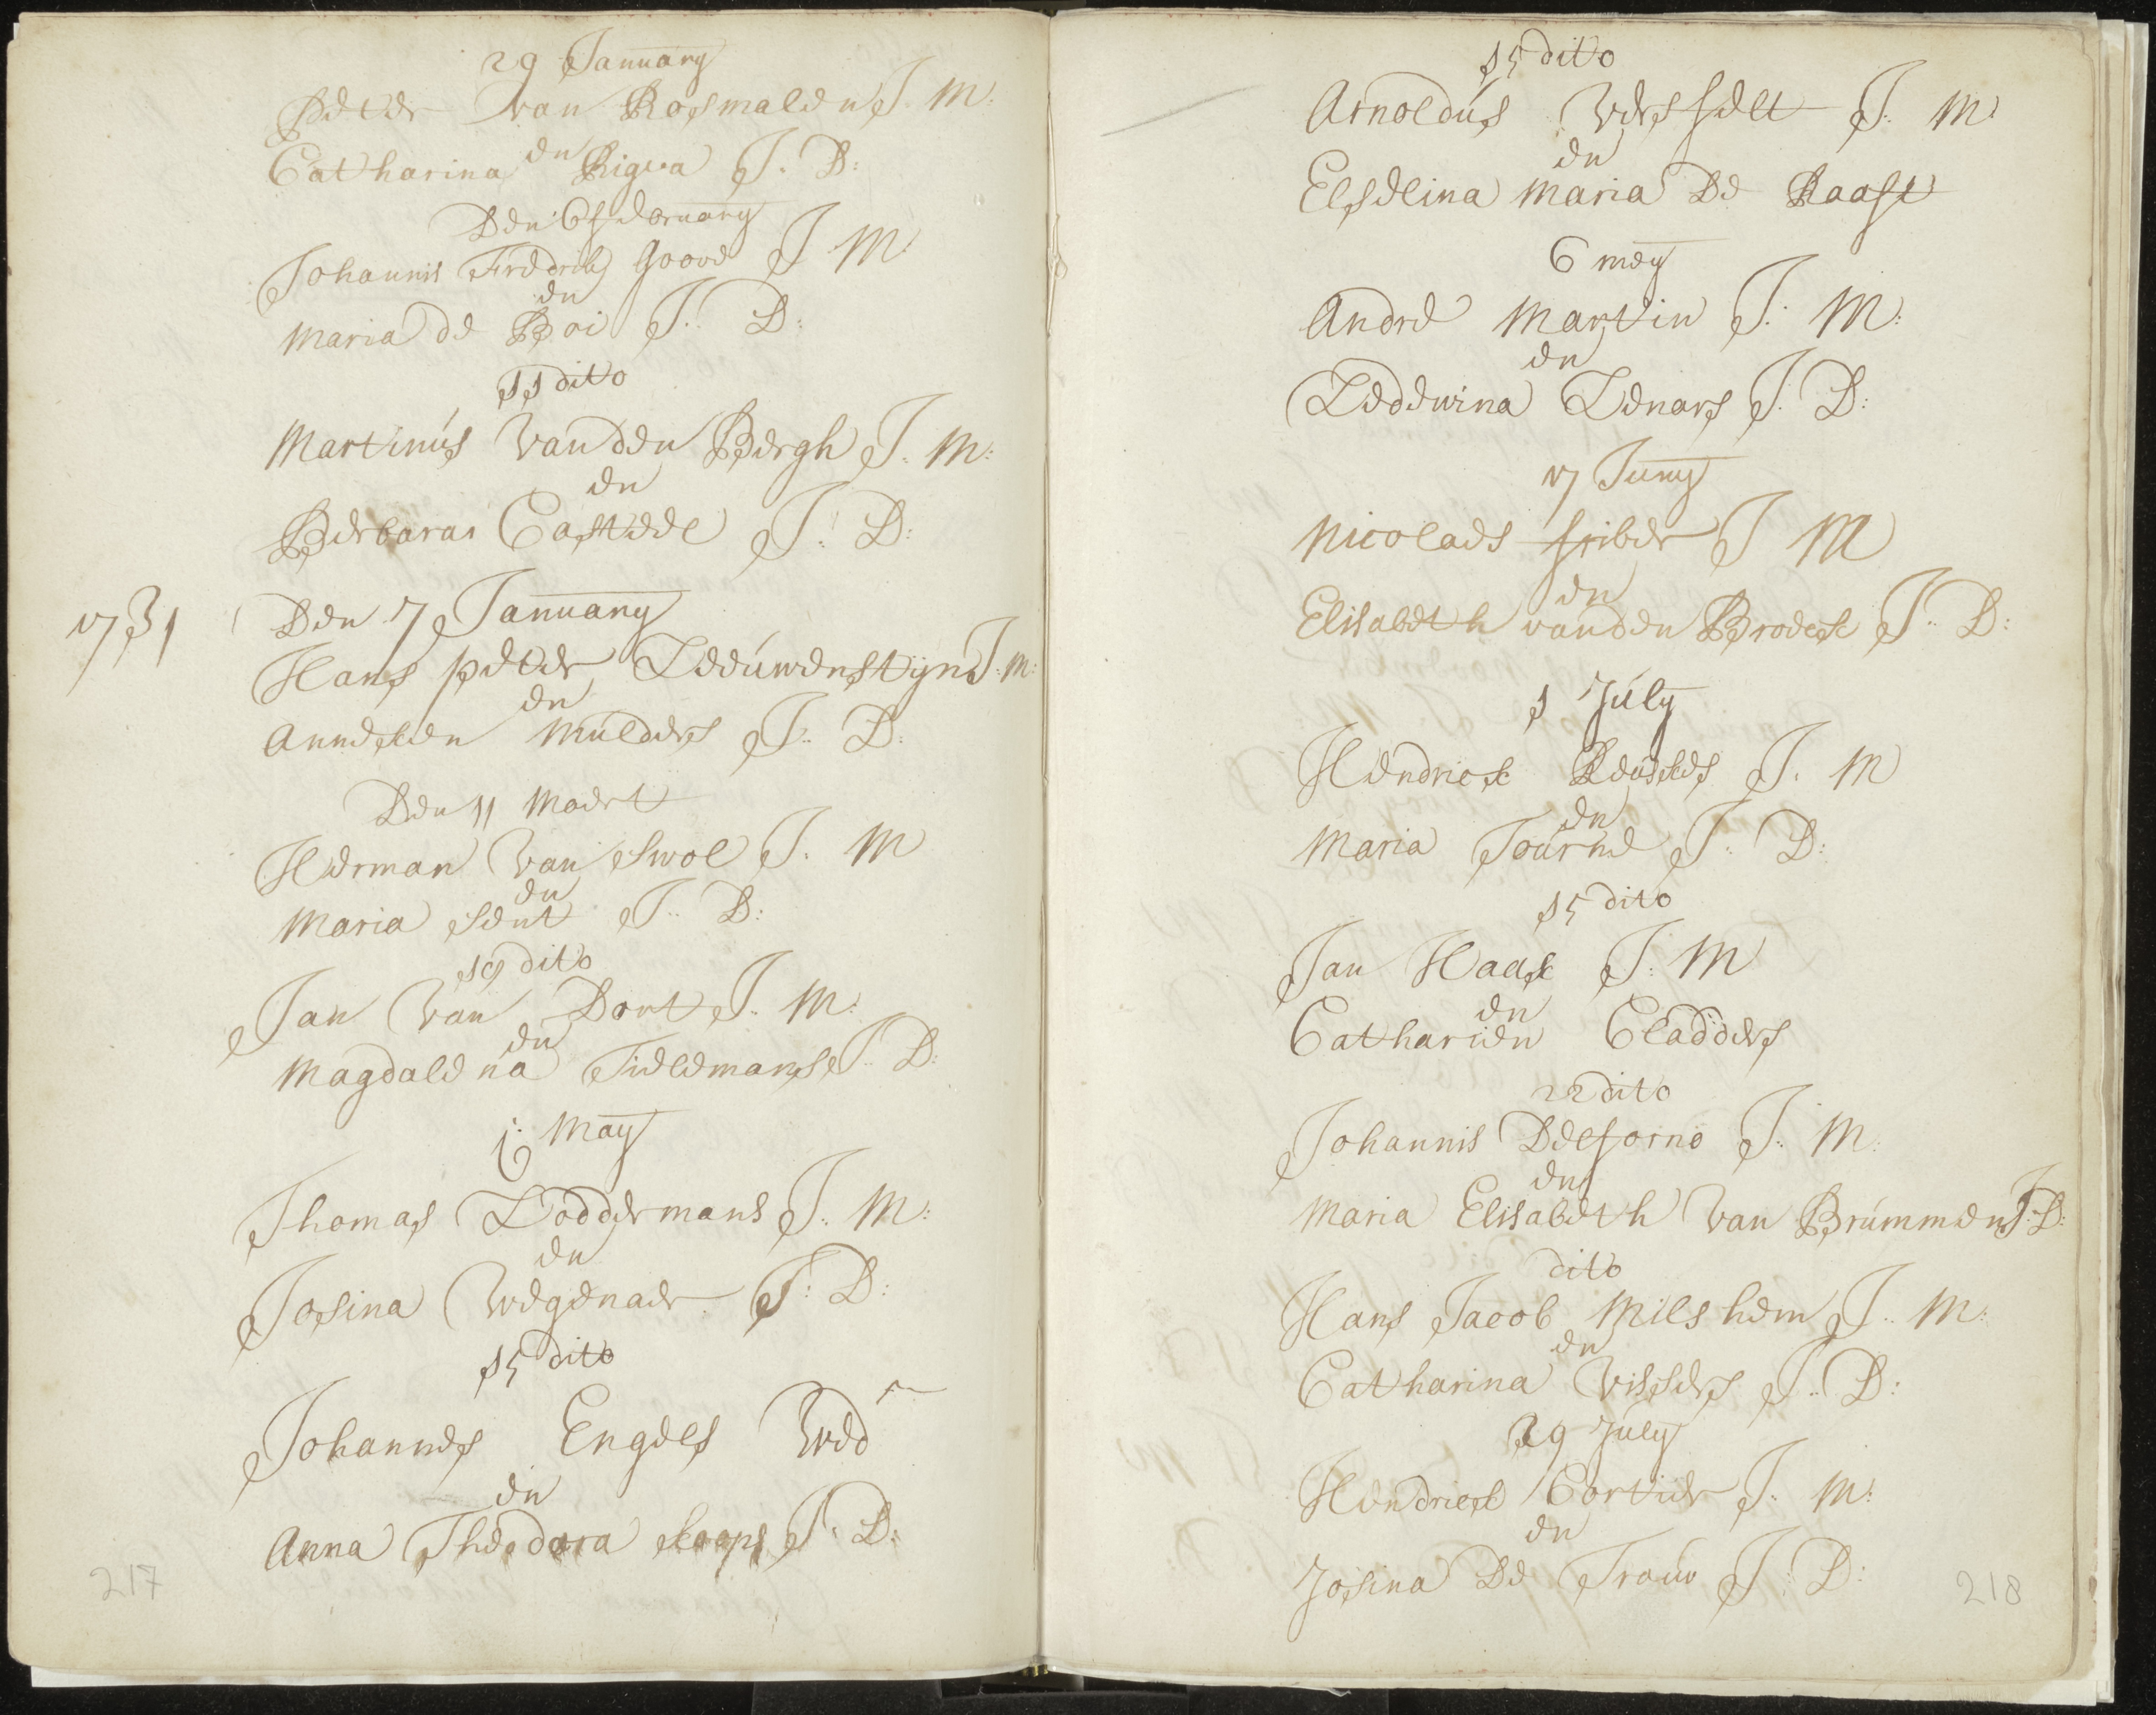 29 January
Peter van Rosmalen J. M:
en
Catharina Rigva J. D:
Den 6 february
Johannis Fredrik Goove J M
en
Maria de Boi J. D:
11 dito
Martinús van den Bergh J. M:
en
Berbaraa Casteel J. D:
1731 Den 7 January
Hans peter Leeúwenstijn J. M:
en
Anneken Múlders J. D:
Den 11 Maert
Herman van Swol J. M
en
Maria Sent J. D:
19 dito
Jan van Dort J. M:
en
Magdalena Tielemans J. D:
6: May
Thomas Loddermans J. M:
en
Josina Wegenaer J: D:
15 dito
Johannes Engels Wed
en
Anna Theodora Koops J. D:
217
15 dito
Arnoldús Versfelt J. M
en
Elselina Maria De Raast
6 mey
Andre Martin J. M:
en
Ledewina Lenars J. D:
17 Juny
Nicolaes friber J M
en
Elisabeth van den Broeck J. D:
1 Júly
Hendrick J. M
en
Maria Toúrne J. D:
15 dito
Jan Haack J. M
en
Catharien Cladders
22 dito
Johannis Delforno J. M:
en
Maria Elisabeth van Brúmmen J. D:
dito
Hans Jacob Milshem J. M:
en
Catharina Vissers J. D:
29 Júly
Hendrick Cortier J. M:
en
Josina De Traúw J. D:
218